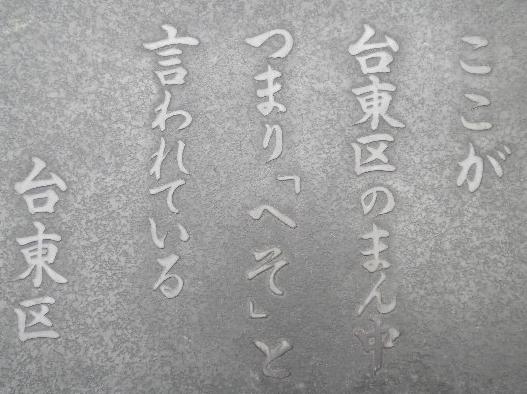 ここが
台東区のまん中
つまり「へそ」と
言われている
台東区